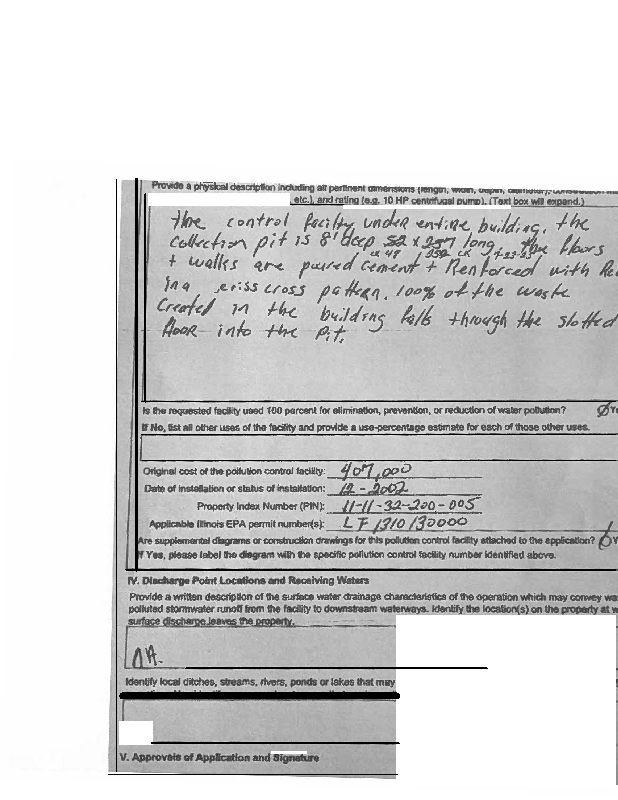 Provide a physical description including all pertinent dimensions (length, width, depth, diameter), construction
etc.), and rating (e.g. 10 HP centrifugal pump). (Text box will expand.)
the control facility under entire building, the
collection pit is 8' deep 52 x 257 long, the floors
48 252 CK
+ walls are poured cement + Renforced with Re
in a criss cross pattern. 100% of the waste
Created in the building falls through the slotted
floor into the pit.
Is the requested facility used 100 percent for elimination, prevention, or reduction of water pollution? Ye
If No, list all other uses of the facility and provide a use-percentage estimate for each of those other uses.
Original cost of the pollution control facility: 407,000
Date of installation or status of installation: 12-2002
Property Index Number (PIN): 11-11-32-200-005
Applicable Illinois EPA permit number(s): LF 1310130000
Are supplemental diagrams or construction drawings for this pollution control facility attached to the application? Y
If Yes, please label the diagram with the specific pollution control facility number identified above.
IV. Discharge Point Locations and Receiving Waters
Provide a written description of the surface water drainage characteristics of the operation which may convey wa
polluted stormwater runoff from the facility to downstream waterways. Identify the location(s) on the property at w
surface discharge leaves the property.
NA.
Identify local ditches, streams, rivers, ponds or lakes that may
V. Approvals of Application and Signature